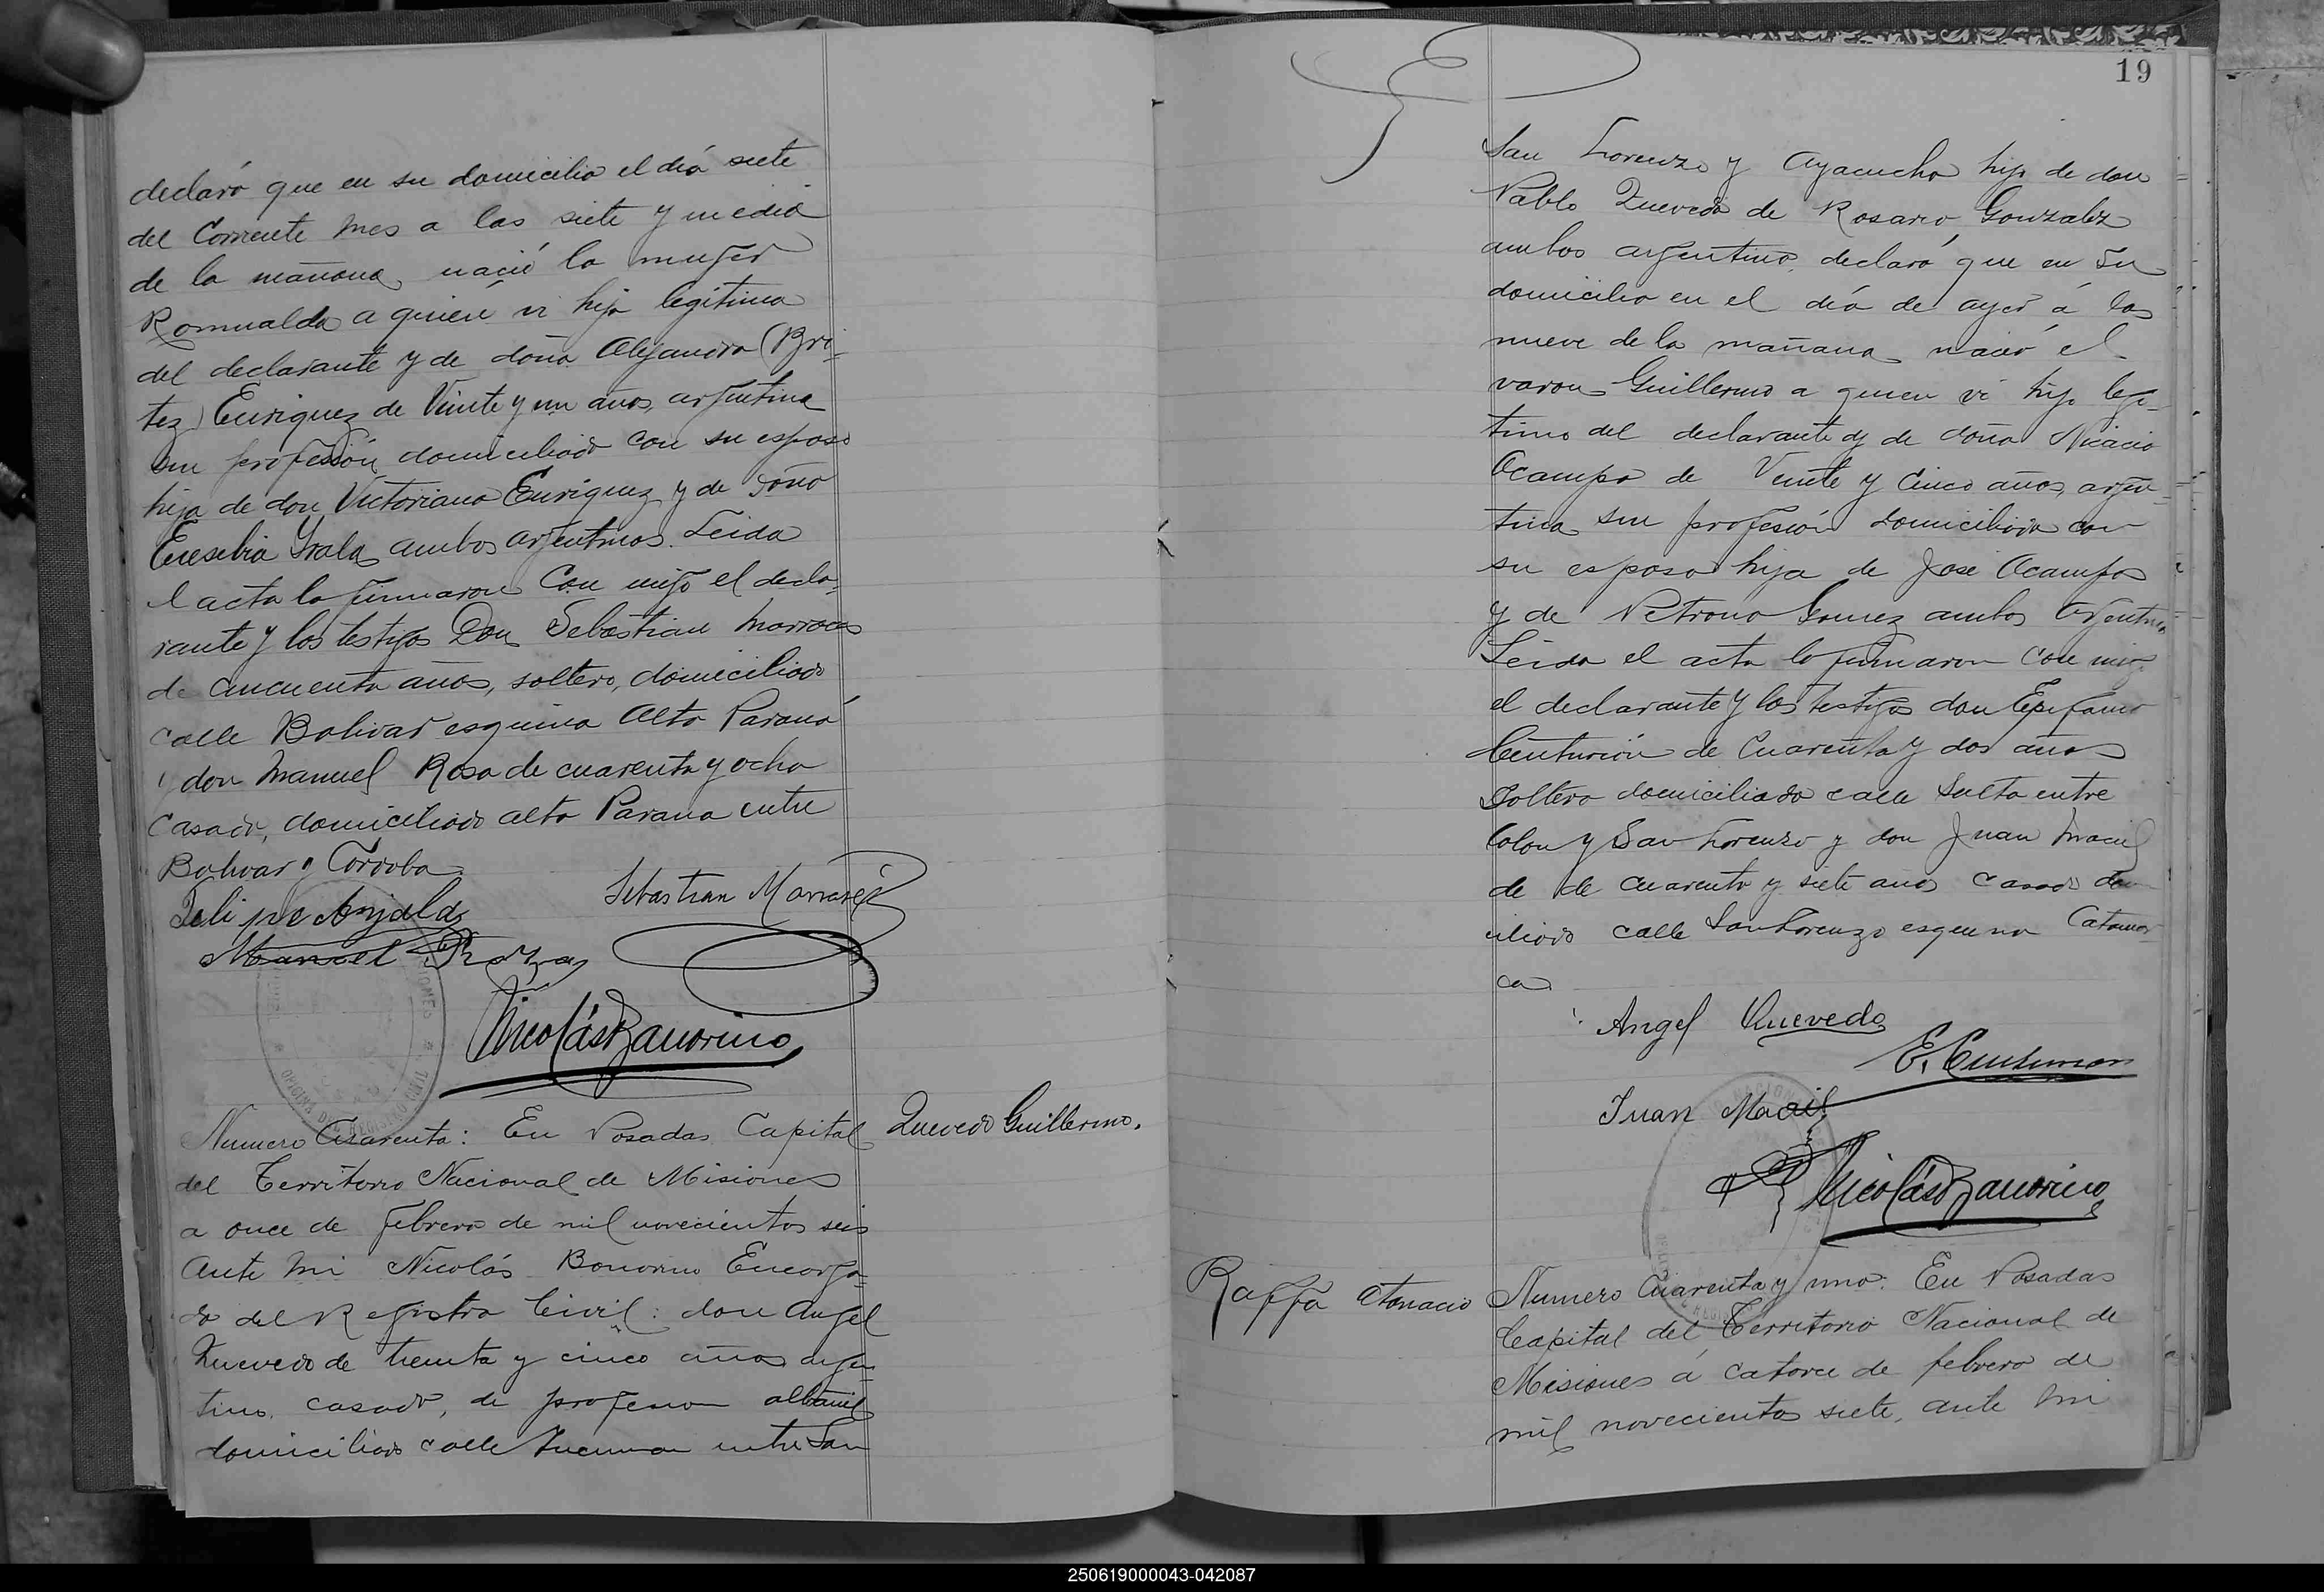 declaró que en su domicilio el día siete
del Corriente mes a las siete y media
de la mañana, nació la mujer
Romualda a quien vi hija legitima
del declarante y de doña Alejandra (Bri-
tez) Enriquez de Veinte y un años, argentina
sin profesión domiciliado con su esposo
hija de don Victoriano Enriquez y de doña
Eusebia Irala ambos argentinos. Leida
l acta la firmaron Con migo el decla-
rante y los testigos Don Sebastian Marraces
de cincuenta años, soltero, domiciliado
calle Bolivar esquina Alto Paraná
y don Manuel Rosa de cuarenta y ocho
casado, domiciliado alto Parana entre
Bolivar y Cordoba
Felipe Ayala
Sebastian Marraces
Manuel Roza
Nicolás Bonorino
Numero Cuarenta: En Posadas Capital
del Territorio Nacional de Misiones
a once de febrero de mil novecientos seis
Ante mi Nicolás Bonorino Encarga-
do del Registro Civil: don Angel
Quevedo de treinta y cinco años argen-
tino, casado, de profesion albañil
domiciliado calle Tucuman entre San
Quevedo Guillermo.
19
San Lorenzo y Ayacucho hijo de don
Pablo Quevedo de Rosario Gonzalez
ambos argentino, declaró que en su
domicilio en el día de ayer á las
nueve de la mañana nació el
varon Guillermo a quien vi hijo legi-
timo del declarante y de doña Nicacia
Ocampo de Veinte y Cinco años, argen-
tina sin profesión domiciliada con
su esposo hija de José Ocampo
y de Petrona Gomez ambos argentinos
Leida el acta la firmaron Con migo
el declarante y los testigos don Epifanio
Centurión de Cuarenta y dos años
Soltero domiciliado calle Salta entre
Colon y San Lorenzo y don Juan Maciel
de de cuarenta y siete años casado dom
iciliado calle San Lorenzo esquina Catamar
ca
Angel Quevedo
E. Centurion
Juan Maciel
Nicolás Bonorino
Raffa Atanacio
Numero Cuarenta y uno: En Posadas
Capital del Territorio Nacional de
Misiones á catorce de febrero de
mil novecientos siete, ante mi
250619000043-042087